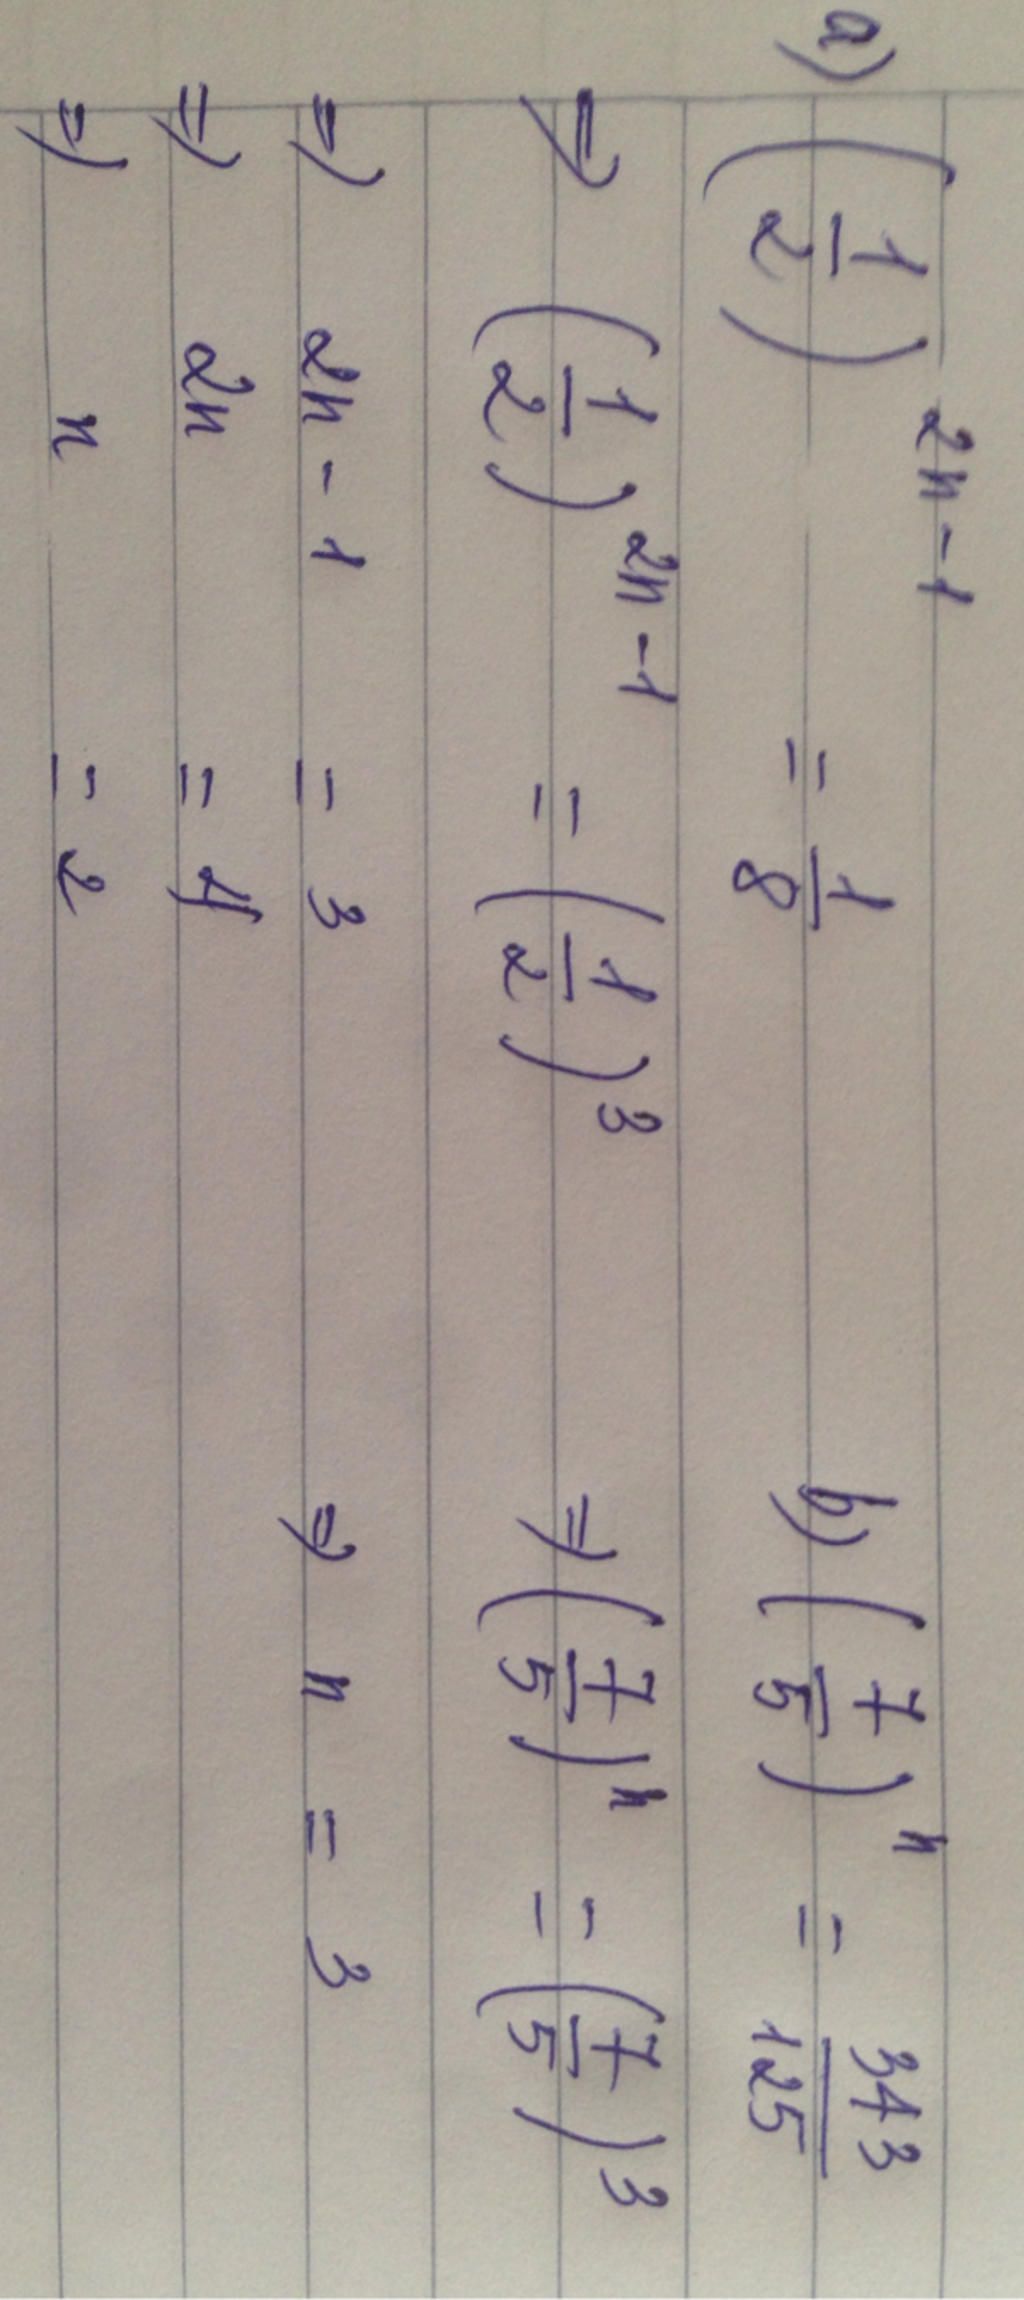 a) (1/2)^(2n-1) = 1/8
=> (1/2)^(2n-1) = (1/2)^3
=> 2n - 1 = 3
=> 2n = 4
=> n = 2
b) (7/5)^n = 343/125
=> (7/5)^n = (7/5)^3
=> n = 3